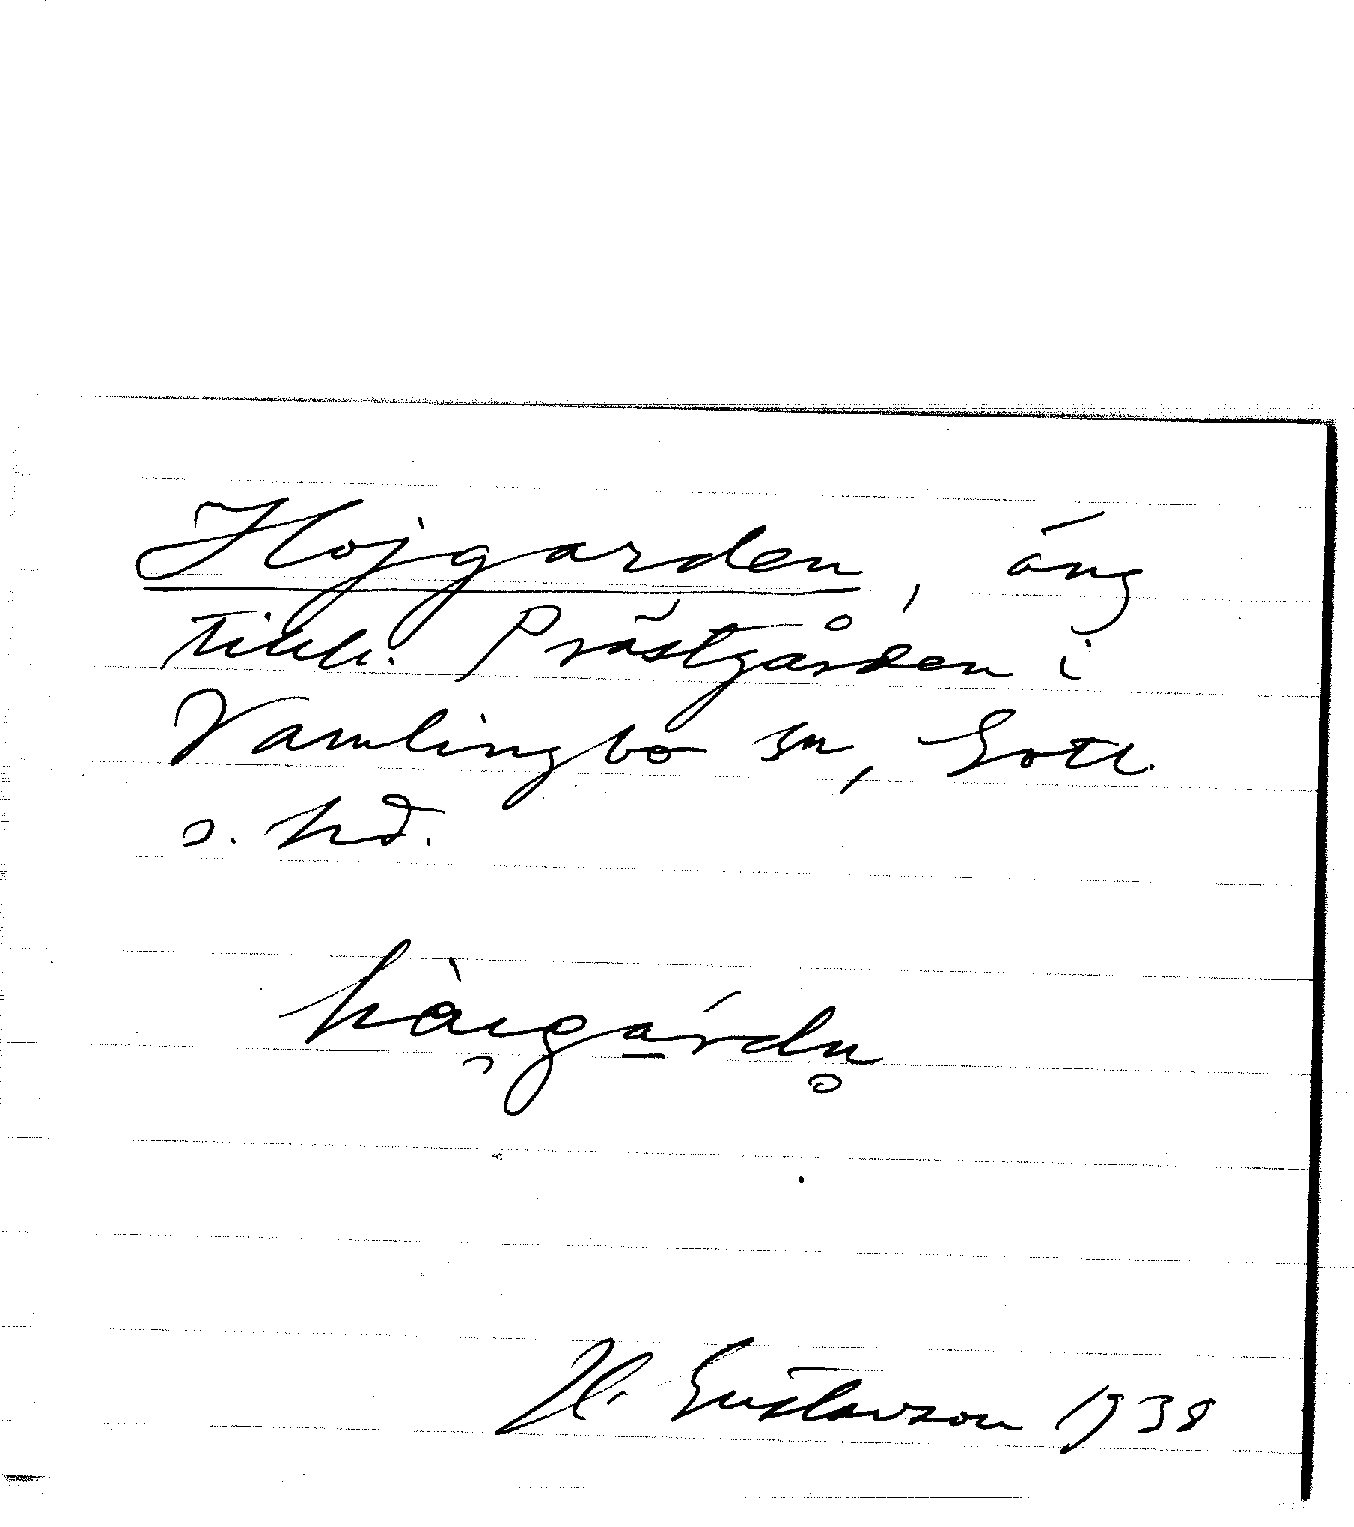 Hojgarden, äng
tillh. Prästgården i
Vamlingbo sn, Gotl.
s. hd.
hài̯gá̱rdn̥
H. Gustavson 1938